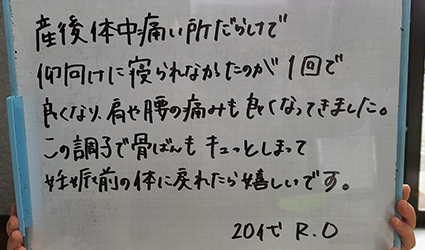 産後体中痛い所だらけで
仰向けに寝られなかたのが1回で
良くなり、肩や腰の痛みも良くなってきました。
この調子で骨ばんもキュッとしまって
妊娠前の体に戻れたら嬉しいです。
20代 R.O